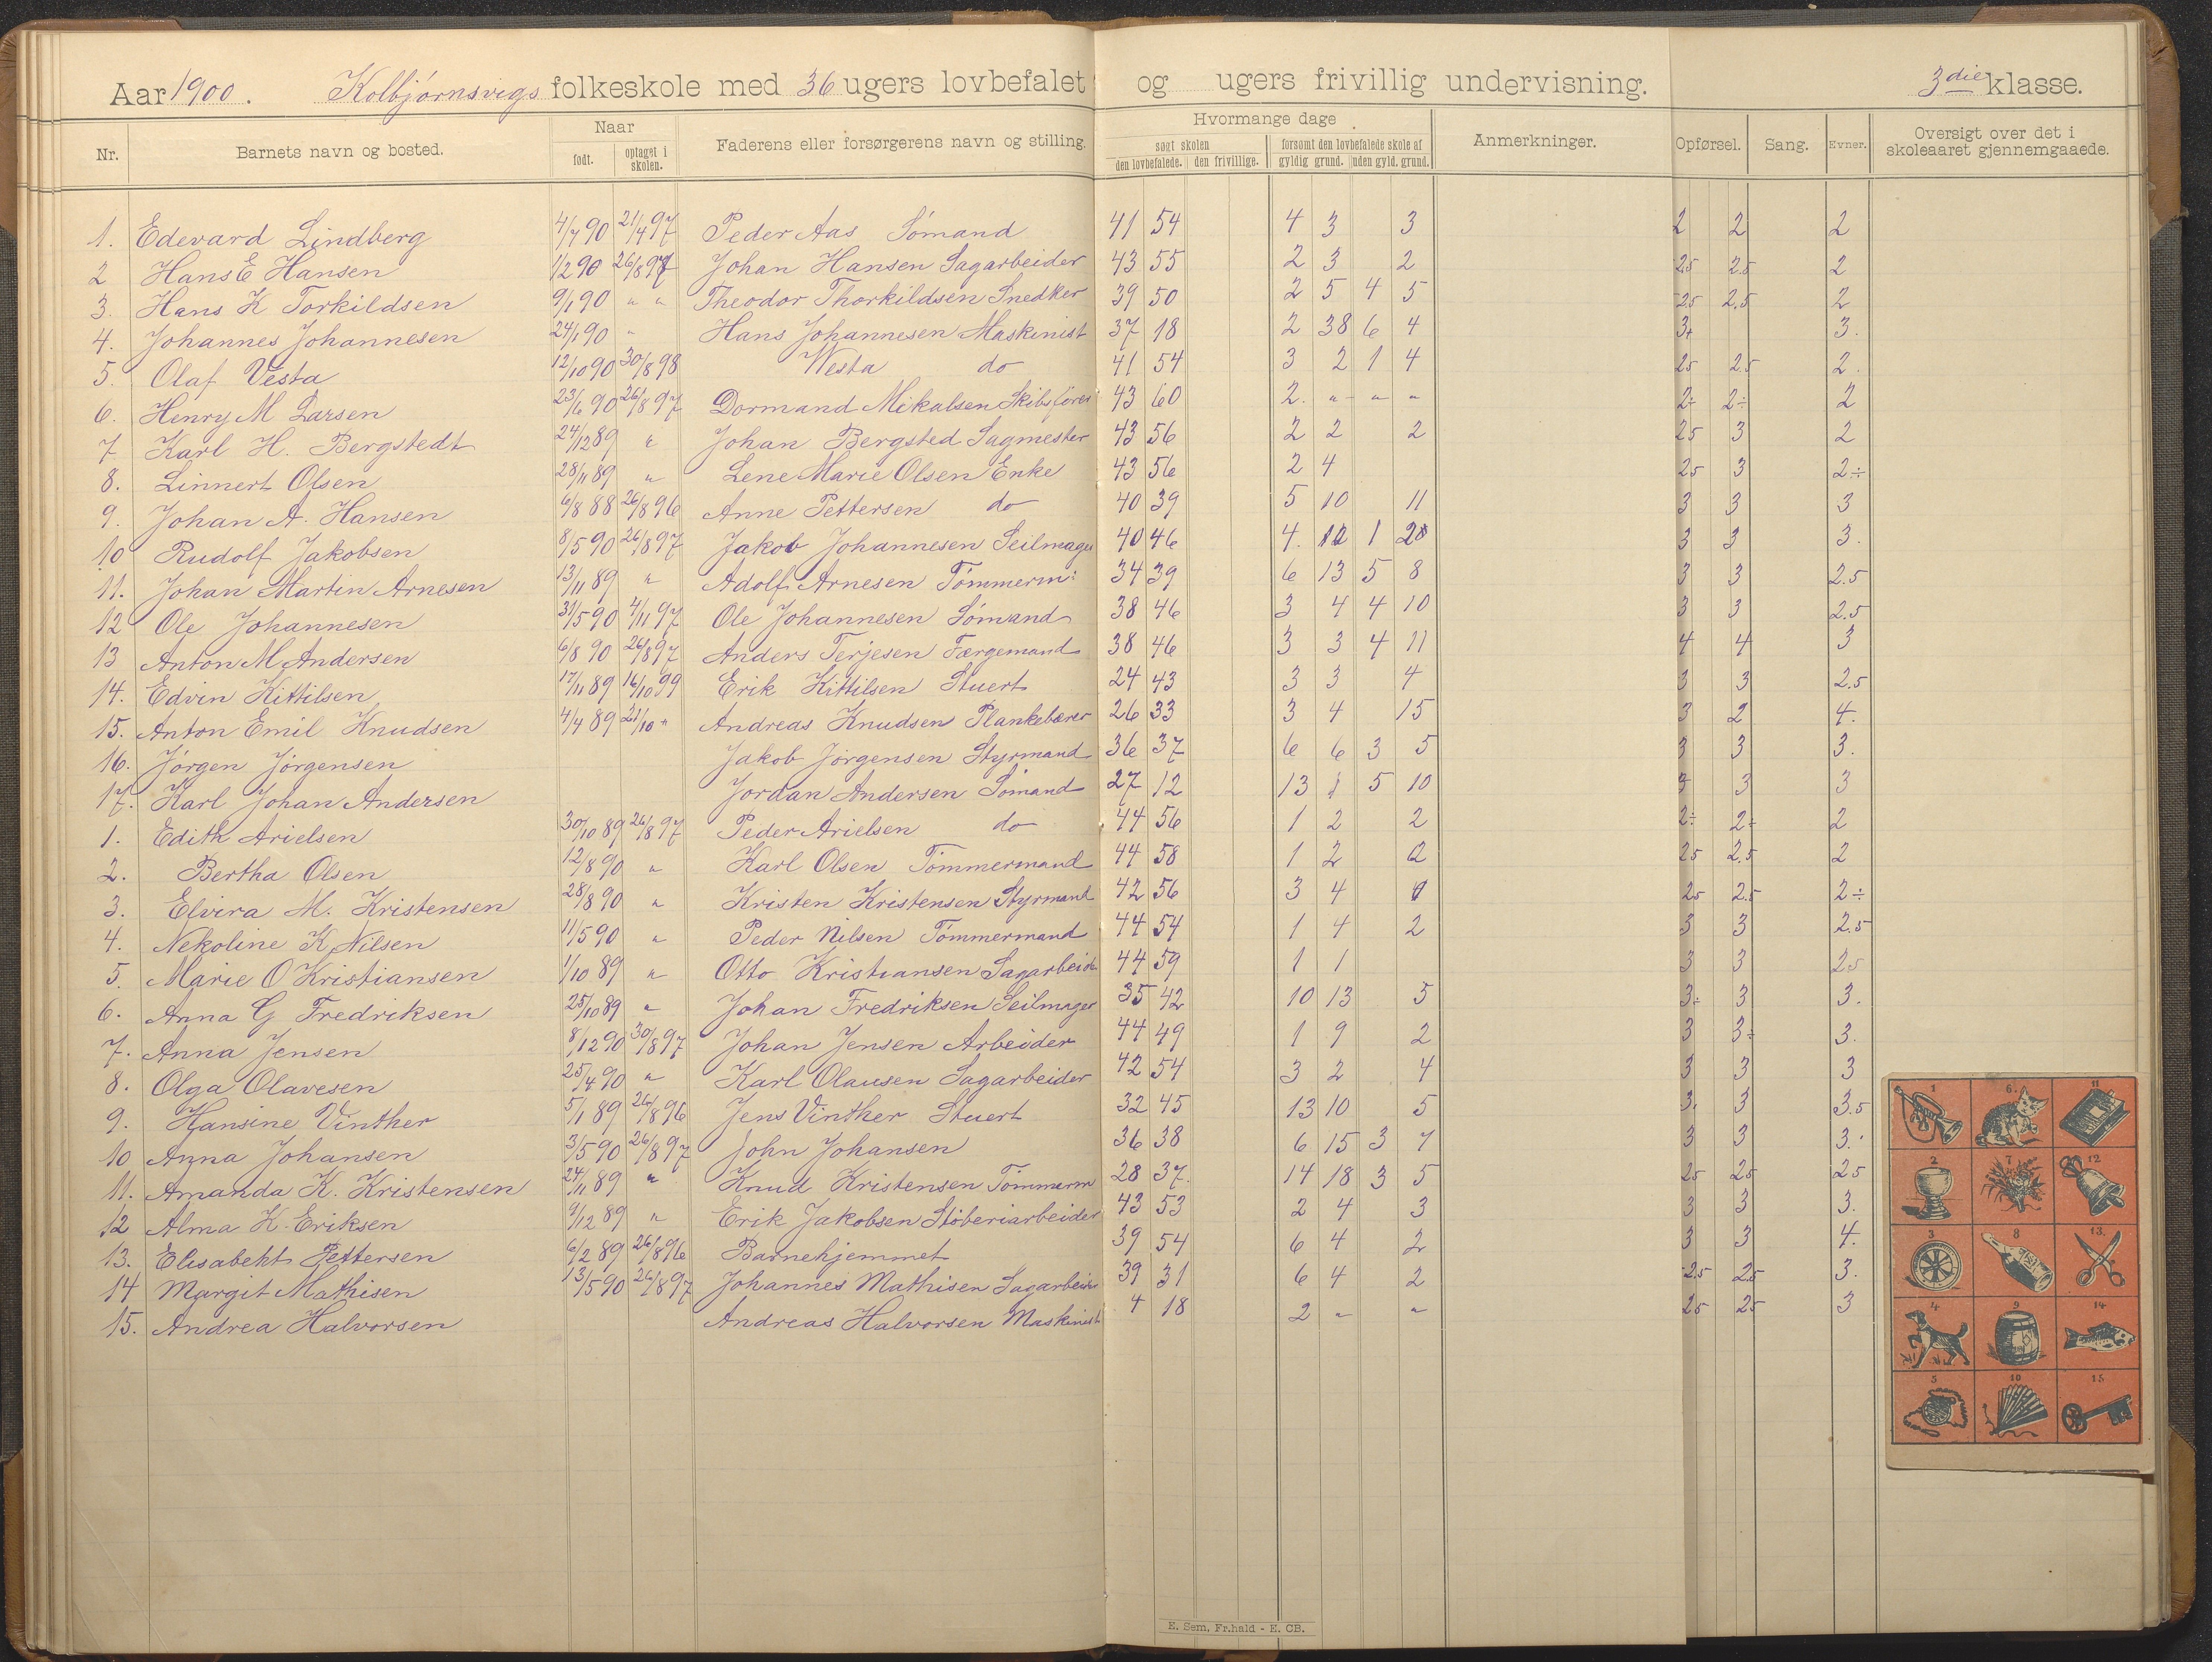 Aar 1900. Kolbjörnsvigs folkeskole med 36 ugers lovbefalet og ugers frivillig undervisning. 3die klasse.
Nr. Barnets navn og bosted. Naar født. optaget i skolen. Faderens eller forsørgerens navn og stilling. Hvormange dage søgt skolen den lovbefalede. den frivillige. forsømt den lovbefalede skole af gyldig grund. uden gyld. grund. Anmerkninger. Opførsel. Sang. Evner. Oversigt over det i skoleaaret gjennemgaaede.
1. Edevard Lindberg 4/7 90 21/4 97 Peder Aas Sömand 41 54 4 3 3 2 2 2
2 Hans E Hansen 1/2 90 26/8 97 Johan Hansen Sagarbeider 43 55 2 3 2 25 2.5 2
3. Hans K Torkildsen 9/1 90 " " Theodor Thorkildsen Snedker 39 50 2 5 4 5 25 2.5 2
4. Johannes Johannesen 24/1 90 " Hans Johannesen Maskinist 37 18 2 38 6 4 3+ 3.
5. Olaf Vesta 12/10 90 30/8 98 Westa do 41 54 3 2 1 4 25 2.5 2.
6. Henry M Larsen 23/6 90 26/8 97 Dormand Mikalsen Skibsförer 43 60 2. " " " 2÷ 2÷ 2
7 Karl H. Bergstedt 24/12 89 " Johan Bergsted Sagmester 43 56 2 2 2 25 3 2
8. Linnert Olsen 28/11 89 " Lene Marie Olsen Enke 43 56 2 4 25 3 2÷
9. Johan A. Hansen 6/8 88 26/8 96 Anne Pettersen do 40 39 5 10 11 3 3 3
10 Rudolf Jakobsen 8/5 90 26/8 97 Jakob Johannesen Seilmager 40 46 4. 12 1 20 3 3 3.
11. Johan Martin Arnesen 13/11 89 " Adolf Arnesen Tömmerm: 34 39 6 13 5 8 3 3 2.5
12 Ole Johannesen 31/5 90 4/11 97 Ole Johannesen Sömand 38 46 3 4 4 10 3 3 2.5
13 Anton M Andersen 6/8 90 26/8 97 Anders Terjesen Færgemand 38 46 3 3 4 11 4 4 3
14. Edvin Kittilsen 17/11 89 16/10 99 Erik Kittilsen Stuert 24 43 3 3 4 3 3 2.5
15. Anton Emil Knudsen 4/4 89 21/10 " Andreas Knudsen Plankebærer 26 33 3 4 15 3 2 4.
16. Jörgen Jörgensen Jakob Jörgensen Styrmand 36 37 6 6 3 5 3 3 3.
17. Karl Johan Andersen Jordan Andersen Sömand 27 12 13 1 5 10 3 3
1. Edith Arielsen 30/10 89 26/8 97 Peder Arielsen do 44 56 1 2 2 2÷ 2÷ 2
2. Bertha Olsen 12/8 90 " Karl Olsen Tömmermand 44 58 1 2 2 25 2.5 2
3. Elvira M. Kristensen 28/8 90 " Kristen Kristensen Styrmand 42 56 3 4 25 2.5 2÷
4. Nekoline K Nilsen 11/5 90 " Peder Nilsen Tömmermand 44 54 1 4 2 3 3 2.5
5. Marie O Kristiansen 1/10 89 " Otto Kristiansen Sagarbeider 44 59 1 1 3 3 25
6. Anna G Fredriksen 25/10 89 " Johan Fredriksen Seilmager 35 42 10 13 5 3÷ 3 3.
7. Anna Jensen 8/12 90 30/8 97 Johan Jensen Arbeider 44 49 1 9 2 3 3÷ 3.
8. Olga Olavesen 25/4 90 " Karl Olausen Sagarbeider 42 54 3 2 4 3 3 3
9. Hansine Vinther 5/1 89 26/8 96 Jens Vinther Stuert 32 45 13 10 5 3. 3 3.5
10 Anna Johansen 3/5 90 26/8 97 John Johansen 36 38 6 15 3 7 3 3 3.
11. Amanda K. Kristensen 24/11 89 " Knud Kristensen Tömmerm 28 37. 14 18 3 5 25 25 25
12 Alma K. Eriksen 9/12 89 " Erik Jakobsen Stöberiarbeider 43 53 2 4 3 3 3 3.
13. Elisabeht Pettersen 6/2 89 26/8 96 Barnehjemmet 39 54 6 4 2 3 3 4.
14 Margit Mathisen 13/5 90 26/8 97 Johannes Mathisen Sagarbeider 39 31 6 4 2 25 25 3.
15. Andrea Halvorsen Andreas Halvorsen Maskinist 4 18 2 " " 25 25 3
1 6. 11
2 7 12
3 8 13.
4 9 14
5 10 15
E. Sem, Fr.hald - E. CB.